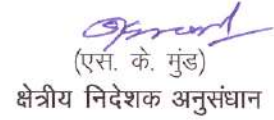 (एस. के. मुंड)
क्षेत्रीय निदेशक अनुसंधान